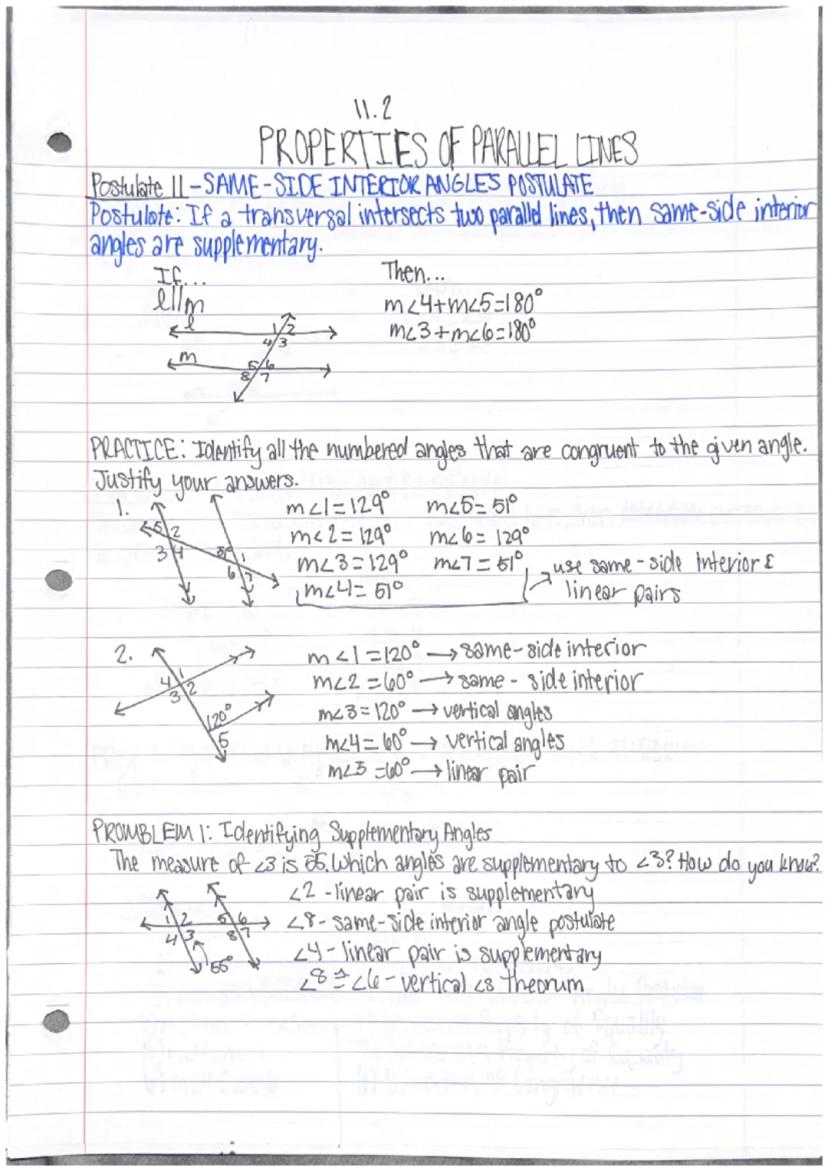 11.2
PROPERTIES OF PARALLEL LINES
Postulate 11 - SAME-SIDE INTERIOR ANGLES POSTULATE
Postulate: If a transversal intersects two parallel lines, then same-side interior
angles are supplementary.
If...
Then...
l||m
m∠4+m∠5=180°
m∠3+m∠6=180°
l
1 2
4 3
m
5 6
8 7
PRACTICE: Identify all the numbered angles that are congruent to the given angle.
Justify your answers.
1.
m∠1=129° m∠5=51°
m∠2=129° m∠6=129°
m∠3=129° m∠7=51°
m∠4=51°
→ use same-side interior &
linear pairs
5 2
3 4
1
6 7
2.
m∠1=120° → same-side interior
m∠2=60° → same-side interior
m∠3=120° → vertical angles
m∠4=60° → vertical angles
m∠5=60° → linear pair
4 1
3 2
120°
5
PROMBLEM 1: Identifying Supplementary Angles
The measure of ∠3 is 55. Which angles are supplementary to ∠3? How do you know?
∠2 - linear pair is supplementary
∠8 - same-side interior angle postulate
∠4 - linear pair is supplementary
∠8 ≅ ∠6 - vertical ∠s Theorum
1 2 5 6
4 3 8 7
55°